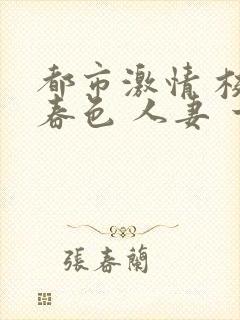 都市激情 校
春色 人妻
張春蘭